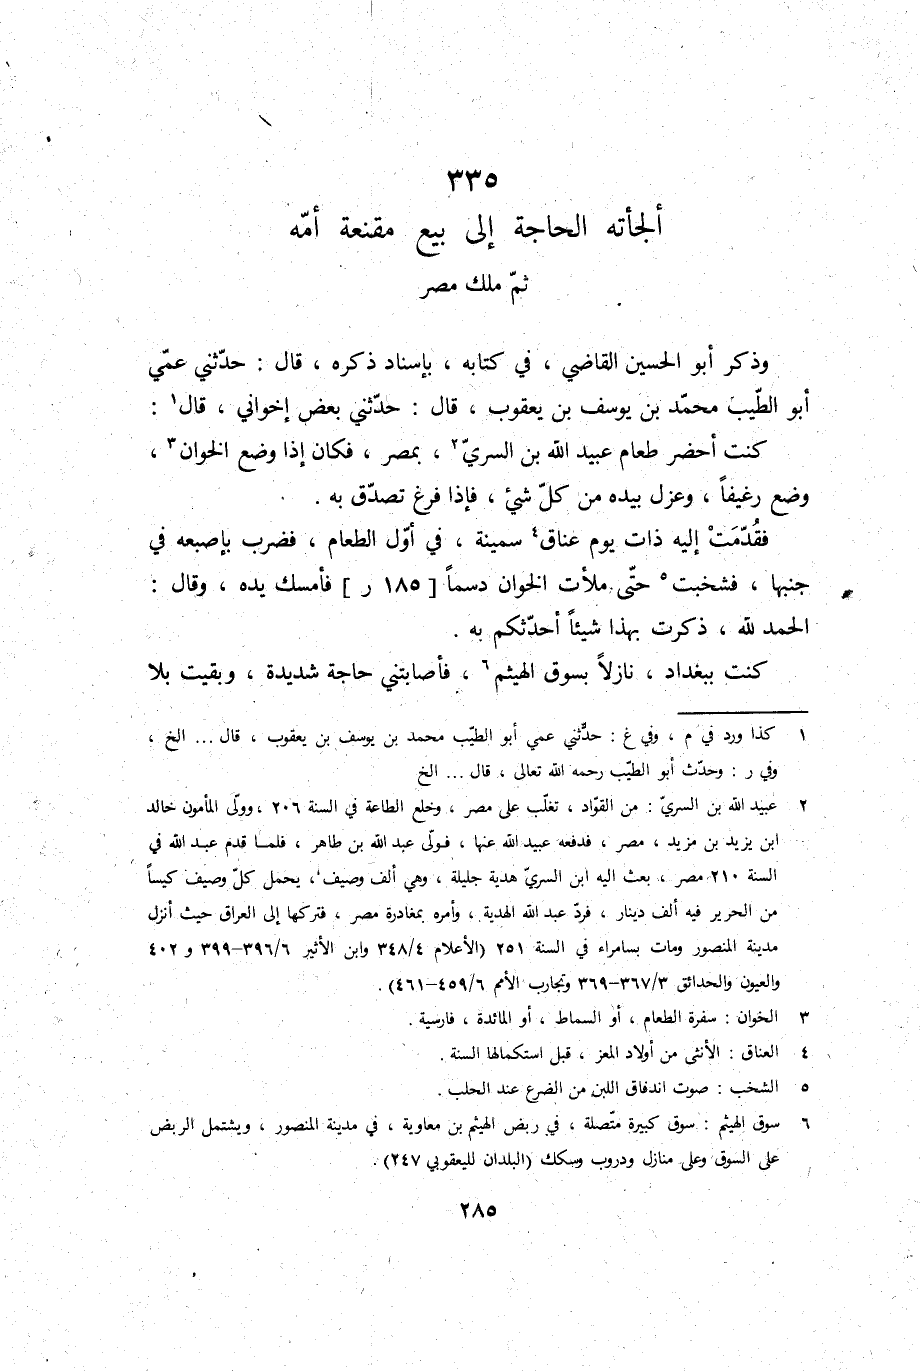 ٣٣٥
ألجأته الحاجة إلى بيع مقنعة أمّه
ثمّ ملك مصر
وذكر أبو الحسين القاضي ، في كتابه ، بإسناد ذكره ، قال : حدّثني عمّي
أبو الطّيب محمّد بن يوسف بن يعقوب ، قال : حدّثني بعض إخواني ، قال١ :
كنت أحضر طعام عبيد الله بن السريّ٢ ، بمصر ، فكان إذا وضع الخوان٣ ،
وضع رغيفاً ، وعزل بيده من كلّ شيْ ، فإذا فرغ تصدّق به .
فقُدّمَتْ إليه ذات يوم عناق٤ سمينة ، في أوّل الطعام ، فضرب بإصبعه في
جنبها ، فشخبت٥ حتّى ملأت الخوان دسماً [ ١٨٥ ر ] فأمسك يده ، وقال :
الحمد لله ، ذكرت بهذا شيئاً أحدّثكم به .
كنت ببغداد ، نازلاً بسوق الهيثم٦ ، فأصابتني حاجة شديدة ، وبقيت بلا
١ كذا ورد في م ، وفي غ : حدّثني عمي أبو الطيّب محمد بن يوسف بن يعقوب ، قال ... الخ ،
وفي ر : وحدّث أبو الطيّب رحمه الله تعالى ، قال ... الخ
٢ عبيد الله بن السريّ : من القوّاد ، تغلّب على مصر ، وخلع الطاعة في السنة ٢٠٦ ، وولّى المأمون خالد
ابن يزيد بن مزيد ، مصر ، فدفعه عبيد الله عنها ، فولّى عبد الله بن طاهر ، فلمـا قدم عبـد الله في
السنة ٢١٠ مصر ، بعث اليه ابن السريّ هدية جليلة ، وهي ألف وصيف ، يحمل كلّ وصيف كيساً
من الحرير فيه ألف دينار ، فردّ عبد الله الهدية ، وأمره بمغادرة مصر ، فتركها إلى العراق حيث أنزل
مدينة المنصور ومات بسامراء في السنة ٢٥١ (الأعلام ٣٤٨/٤ وابن الأثير ٣٩٦/٦–٣٩٩ و ٤٠٢
والعيون والحدائق ٣٦٧/٣–٣٦٩ وتجارب الأمم ٤٥٩/٦–٤٦١) .
٣ الخوان : سفرة الطعام ، أو السماط ، أو المائدة ، فارسية .
٤ العناق : الأنثى من أولاد المعز ، قبل استكمالها السنة .
٥ الشخب : صوت اندفاق اللبن من الضرع عند الحلب .
٦ سوق الهيثم : سوق كبيرة متّصلة ، في ربض الهيثم بن معاوية ، في مدينة المنصور ، ويشتمل الربض
على السوق وعلى منازل ودروب وسكك (البلدان لليعقوبي ٢٤٧) .
٢٨٥